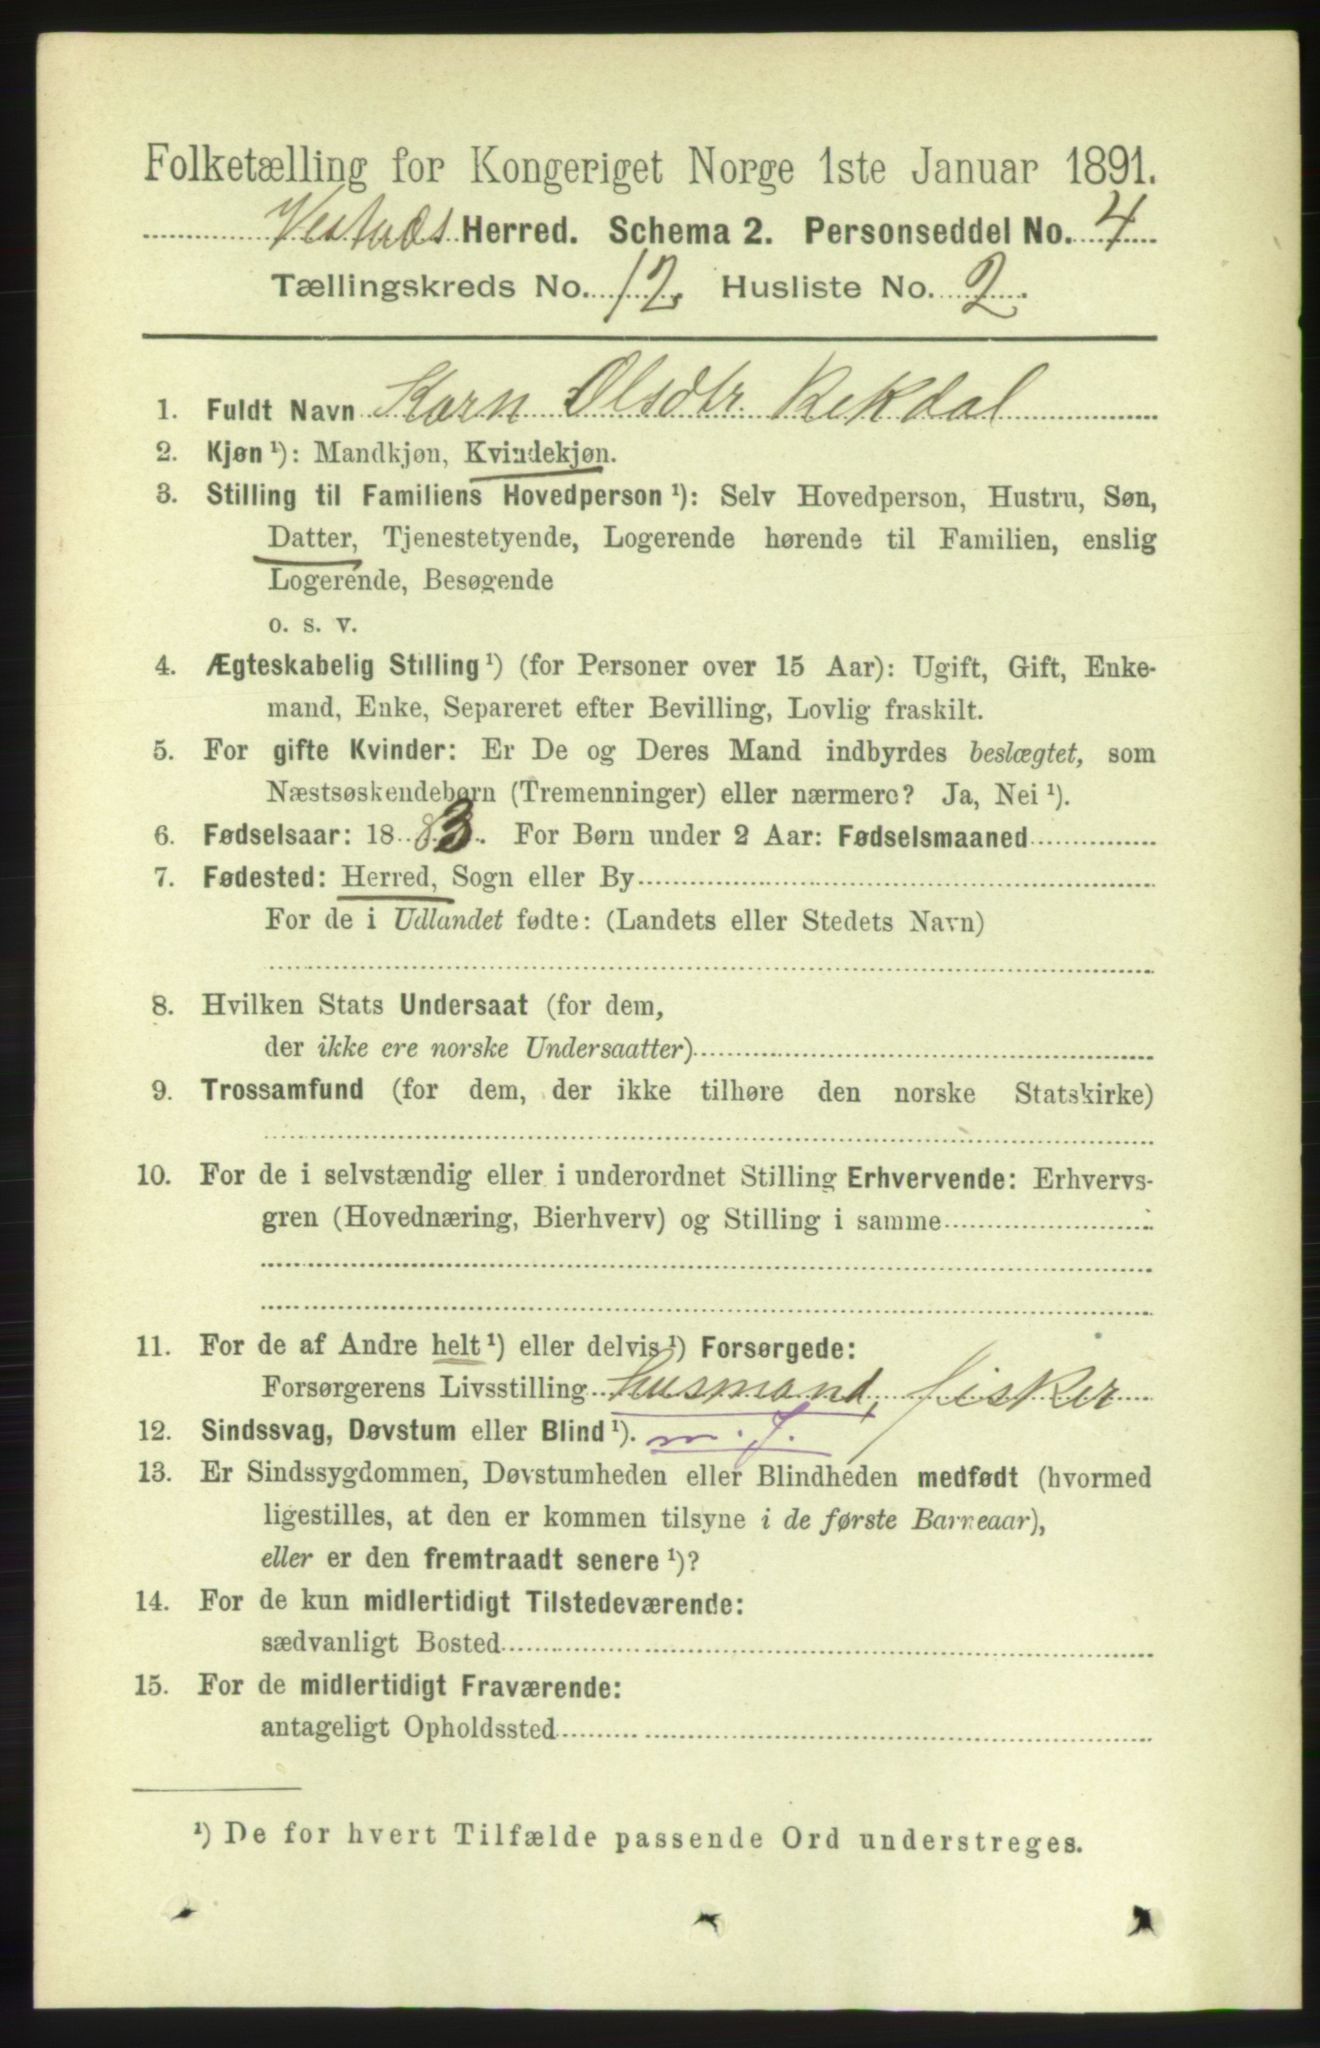 Folketælling for Kongeriget Norge 1ste Januar 1891.
Vestnæs Herred. Schema 2. Personseddel No. 4
Tællingskreds No. 12. Husliste No. 2.
1. Fuldt Navn Karn Olsdtr Rekdal
2. Kjøn ¹): Mandkjøn, Kvindekjøn.
3. Stilling til Familiens Hovedperson ¹): Selv Hovedperson, Hustru, Søn,
Datter, Tjenestetyende, Logerende hørende til Familien, enslig
Logerende, Besøgende
o. s. v.
4. Ægteskabelig Stilling ¹) (for Personer over 15 Aar): Ugift, Gift, Enke-
mand, Enke, Separeret efter Bevilling, Lovlig fraskilt.
5. For gifte Kvinder: Er De og Deres Mand indbyrdes beslægtet, som
Næstsøskendebørn (Tremenninger) eller nærmere? Ja, Nei ¹).
6. Fødselsaar: 1883. For Børn under 2 Aar: Fødselsmaaned
7. Fødested: Herred, Sogn eller By
For de i Udlandet fødte: (Landets eller Stedets Navn)
8. Hvilken Stats Undersaat (for dem,
der ikke ere norske Undersaatter)
9. Trossamfund (for dem, der ikke tilhøre den norske Statskirke)
10. For de i selvstændig eller i underordnet Stilling Erhvervende: Erhvervs-
gren (Hovednæring, Bierhverv) og Stilling i samme
11. For de af Andre helt ¹) eller delvis ¹) Forsørgede:
Forsørgerens Livsstilling husmand, fisker
12. Sindssvag, Døvstum eller Blind ¹). m. J.
13. Er Sindssygdommen, Døvstumheden eller Blindheden medfødt (hvormed
ligestilles, at den er kommen tilsyne i de første Barneaar),
eller er den fremtraadt senere ¹)?
14. For de kun midlertidigt Tilstedeværende:
sædvanligt Bosted
15. For de midlertidigt Fraværende:
antageligt Opholdssted
¹) De for hvert Tilfælde passende Ord understreges.